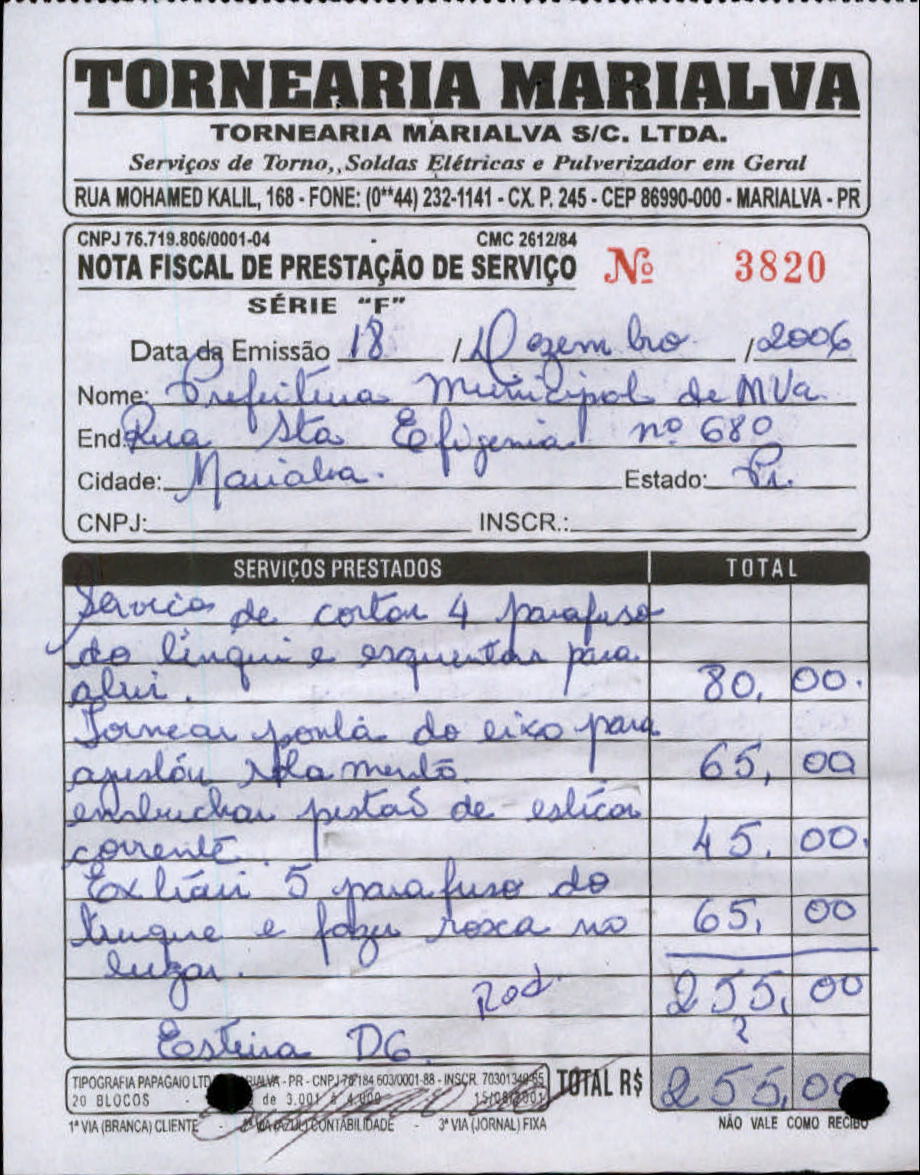 TORNEARIA MARIALVA
TORNEARIA MARIALVA S/C. LTDA.
Serviços de Torno,,Soldas Elétricas e Pulverizador em Geral
RUA MOHAMED KALIL, 168 - FONE: (0**44) 232-1141 - CX. P. 245 - CEP 86990-000 - MARIALVA - PR
CNPJ 76.719.806/0001-04 - CMC 2612/84
NOTA FISCAL DE PRESTAÇÃO DE SERVIÇO Nº 3820
SÉRIE "F"
Data da Emissão 18 / Dezembro / 2006
Nome: Prefeitura Municipal de MVa
End Rua Sta Efigenia nº 680
Cidade: Marialva. Estado: Pr.
CNPJ: INSCR.:
SERVIÇOS PRESTADOS TOTAL
Serviço de cortar 4 parafuso
do e esquentar para
80,00.
Tornear ponta do eixo para
ajustar rolamento 65,00
embuchar pistaõ de esticar
corrente. 45,00.
Extrair 5 parafuso do
truque e fazer rosca no 65,00
lugar.
Rod. 255,00
?
Esteira D6.
TIPOGRAFIA PAPAGAIO LTD - PR - CNPJ 78 184 603/0001-88 - INSCR. 70301349-55
TOTAL R$ 255,00
20 BLOCOS - de 3.001 à 4.000 15/08/2001
1ª VIA (BRANCA) CLIENTE - 2ª VIA (AZUL) CONTABILIDADE - 3ª VIA (JORNAL) FIXA NÃO VALE COMO RECIBO